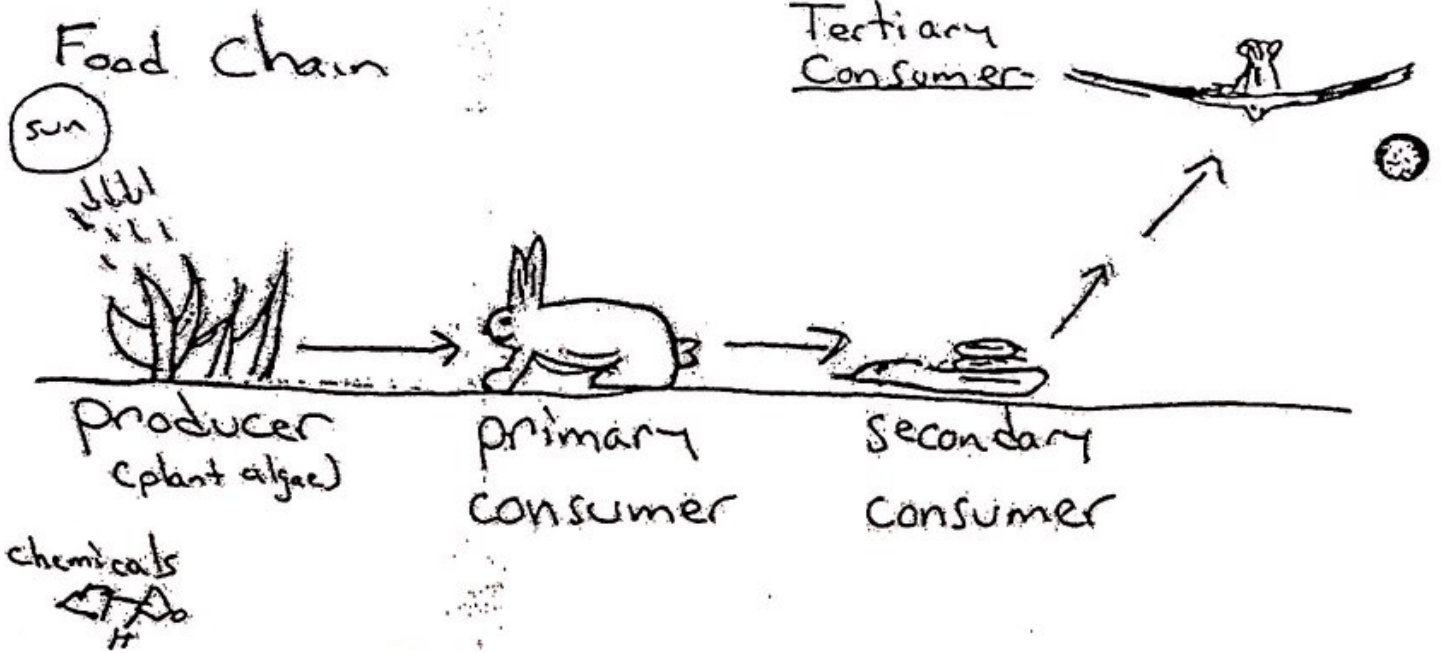 Food Chain
sun
Tertiary
Consumer
producer
(plant algae)
primary
consumer
secondary
consumer
chemicals
H